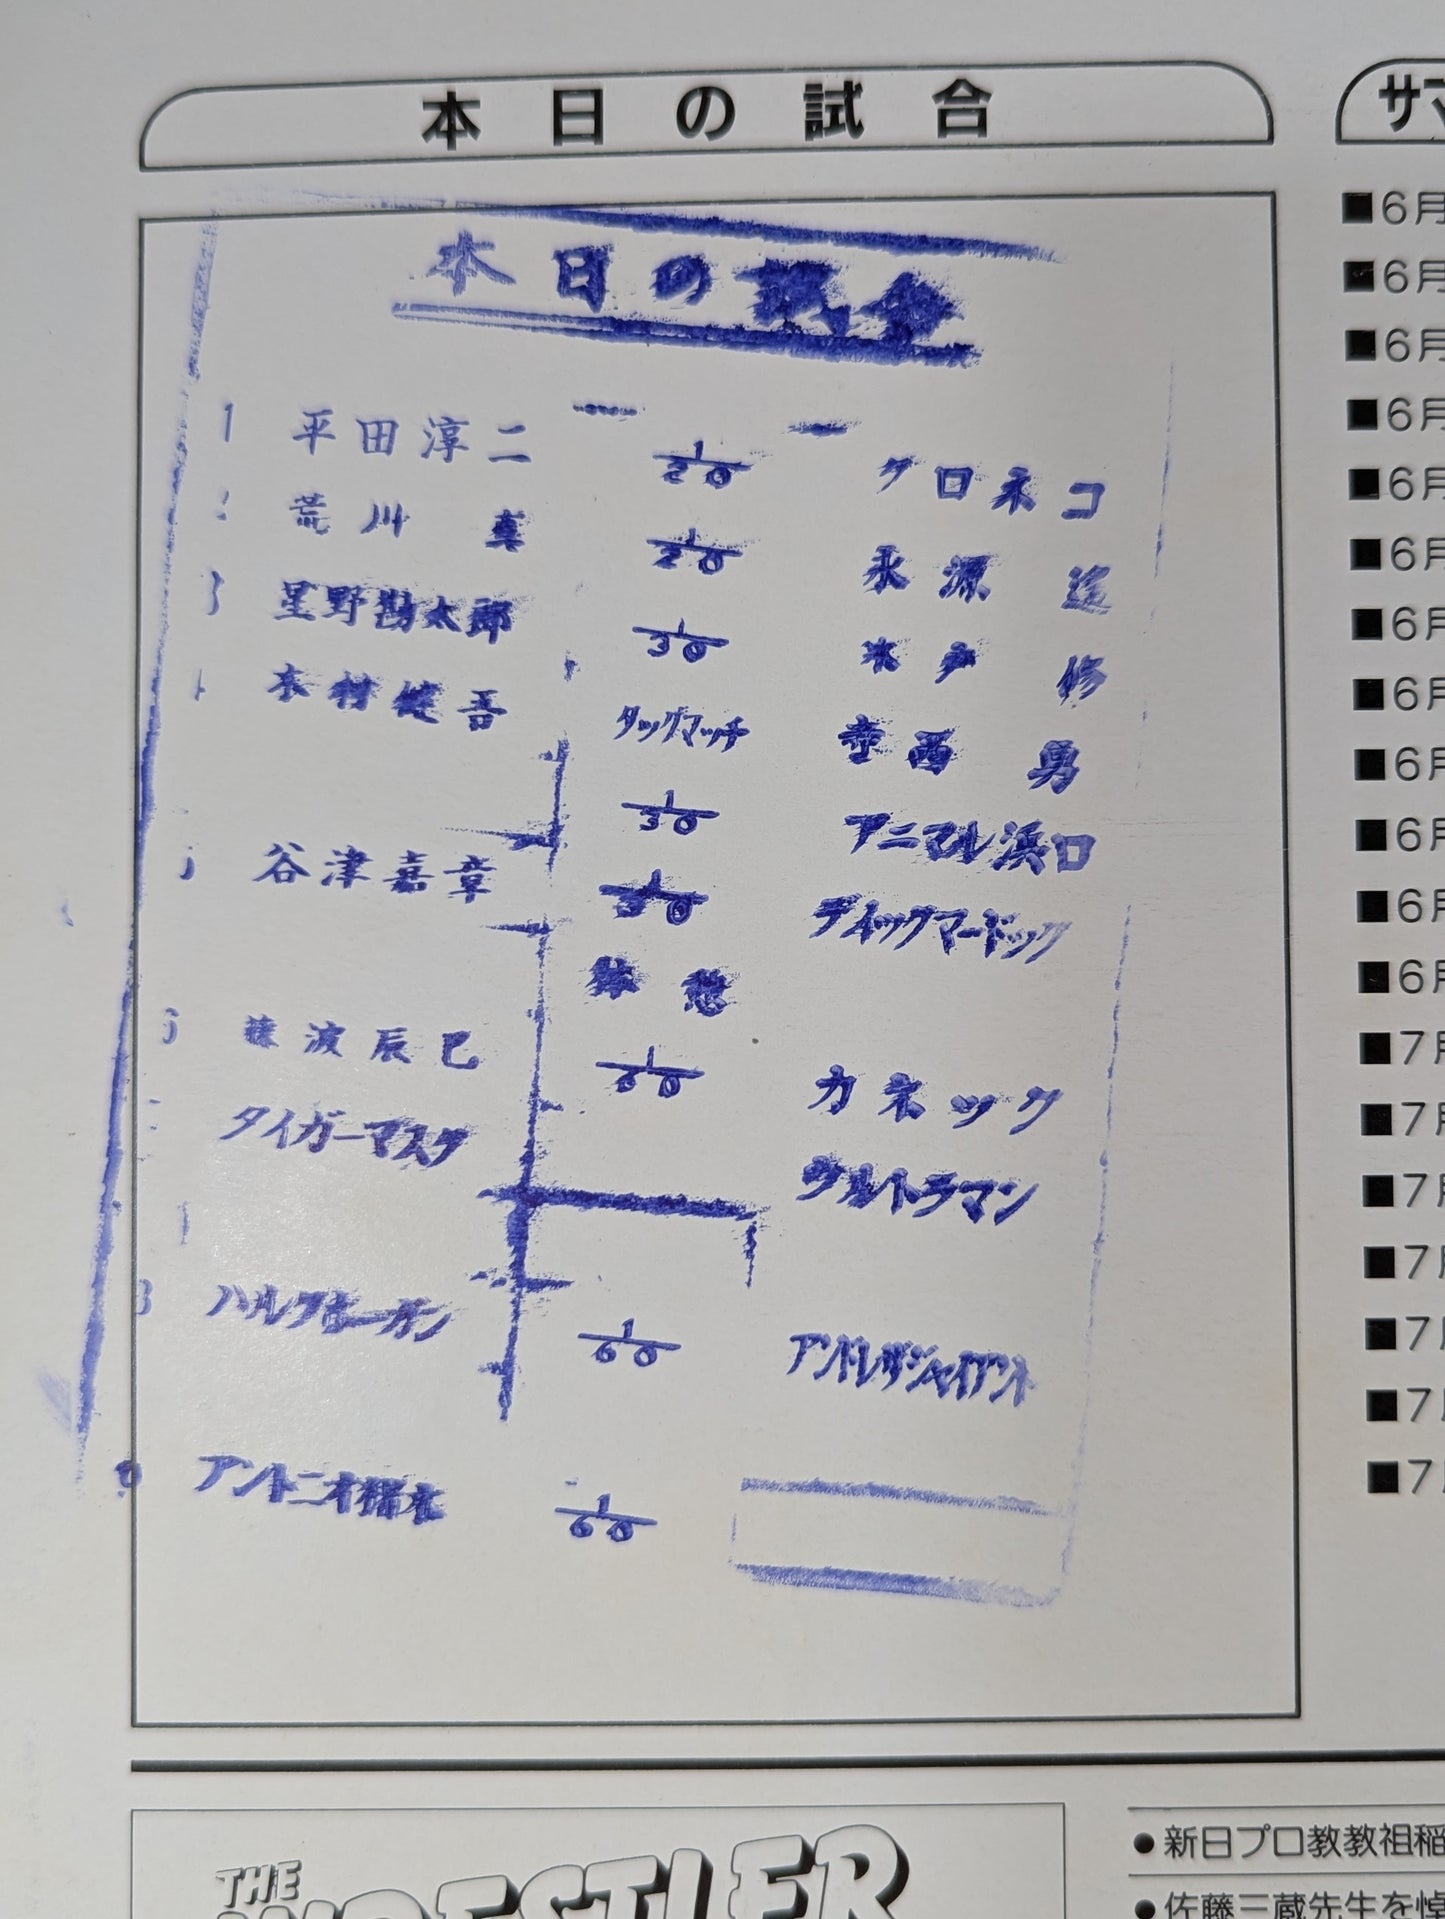 本日の試合
サマ
本日の試合
1 平田淳二 1/20 クロネコ
2 荒川真 1/20 永源遥
3 星野勘太郎 1/30 木戸修
木村健吾 タッグマッチ 寺西勇
1/30 アニマル浜口
谷津嘉章 1/30 ディックマードック
休憩
6 藤波辰巳 1/60 カネック
タイガーマスク ウルトラマン
8 ハルクホーガン 1/60 アンドレザジャイアント
9 アントニオ猪木 1/60
■6月
■6月
■6月
■6月
■6月
■6月
■6月
■6月
■6月
■6月
■6月
■6月
■7月
■7月
■7月
■7月
■7月
■7月
■7月
THE
WRESTLER
●新日プロ教教祖稲
●佐藤三蔵先生を悼